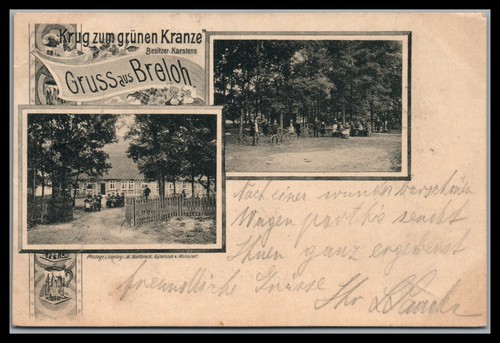 "Krug zum grünen Kranze"
Besitzer: Karstens
Gruss aus Breloh
Nach einer wunder
Wagen parthie sendet
Ihnen ganz ergebenst
freundliche Grüsse Ihr